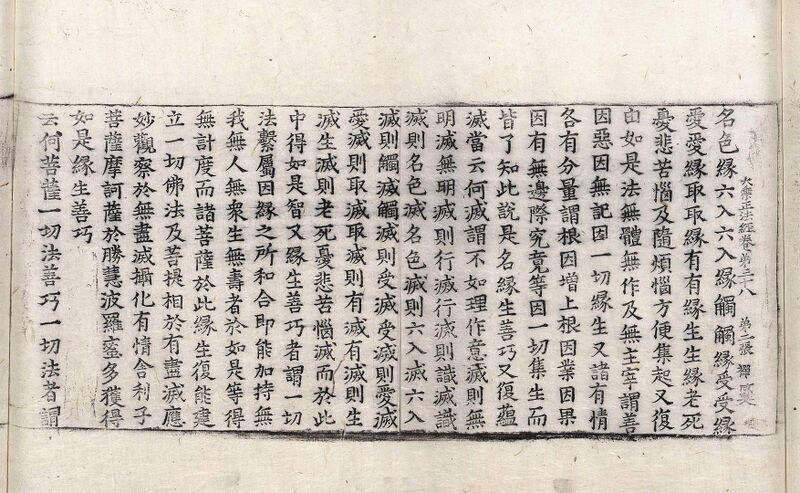 大乘正法經卷第三十八 第二張
名色緣六入六入緣觸觸緣受受緣
愛愛緣取取緣有有緣生生緣老死
憂悲苦惱及隨煩惱方便集起又復
由如是法無體無作及無主宰謂善
因惡因無記因一切緣生又諸有情
各有分量謂根因增上根因業因果
因有無邊際究竟等因一切集生而
皆了知此說是名緣生善巧又復蘊
滅當云何滅謂不如理作意滅則無
明滅無明滅則行滅行滅則識滅識
滅則名色滅名色滅則六入滅六入
滅則觸滅觸滅則受滅受滅則愛滅
愛滅則取滅取滅則有滅有滅則生
滅生滅則老死憂悲苦惱滅而於此
中得如是智又緣生善巧者謂一切
法繫屬因緣之所和合即能加持無
我無人無衆生無壽者於如是等得
無計度而諸菩薩於此緣生復能建
立一切佛法及菩提相於有盡滅應
妙觀察於無盡滅攝化有情舍利子
菩薩摩訶薩於勝慧波羅蜜多獲得
如是緣生善巧
云何菩薩一切法善巧一切法者謂